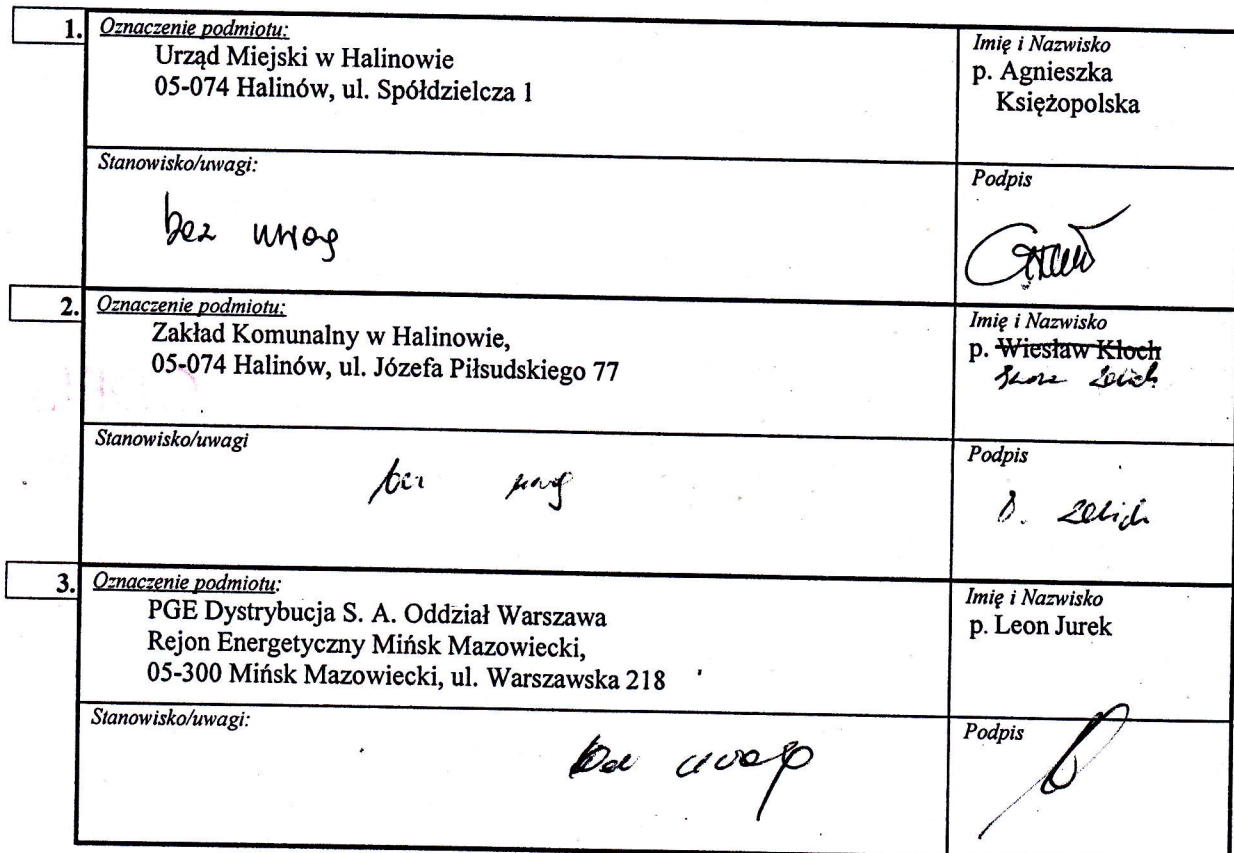 1. Oznaczenie podmiotu:
Urząd Miejski w Halinowie
05-074 Halinów, ul. Spółdzielcza 1
Imię i Nazwisko
p. Agnieszka
Księżopolska
Stanowisko/uwagi:
bez uwag
Podpis
2. Oznaczenie podmiotu:
Zakład Komunalny w Halinowie,
05-074 Halinów, ul. Józefa Piłsudskiego 77
Imię i Nazwisko
p. Wiesław Kłoch
Stanowisko/uwagi
bez uwag
Podpis
3. Oznaczenie podmiotu:
PGE Dystrybucja S. A. Oddział Warszawa
Rejon Energetyczny Mińsk Mazowiecki,
05-300 Mińsk Mazowiecki, ul. Warszawska 218
Imię i Nazwisko
p. Leon Jurek
Stanowisko/uwagi:
bez uwag
Podpis